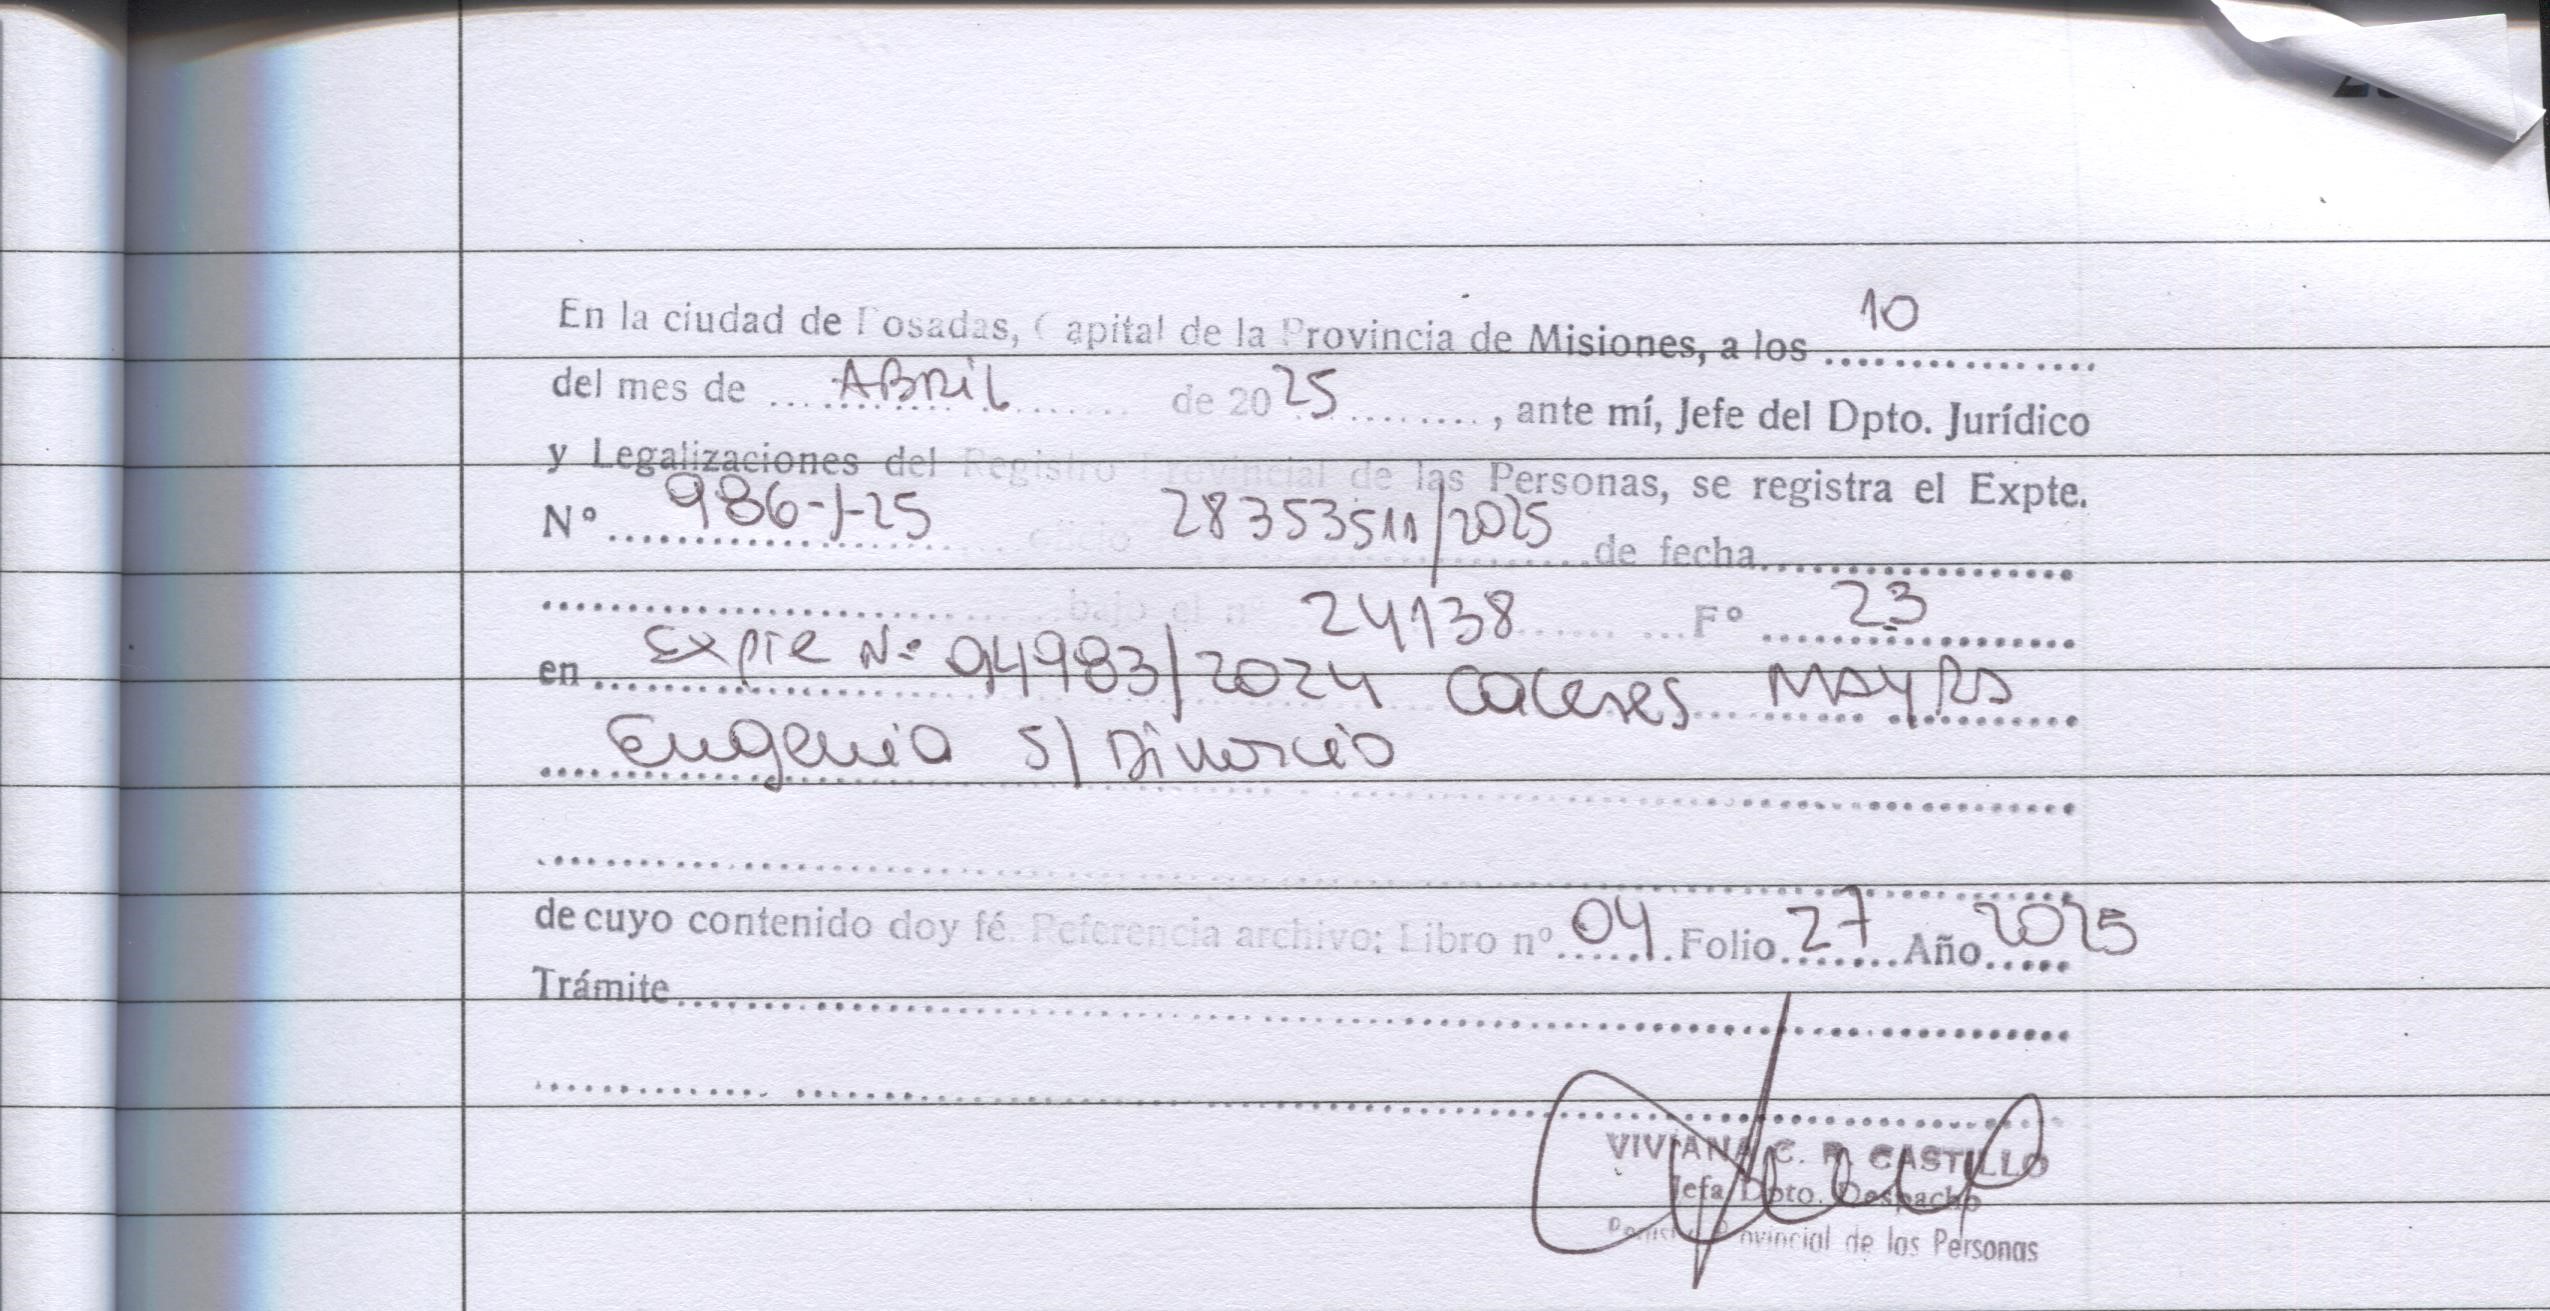 En la ciudad de Posadas, Capital de la Provincia de Misiones, a los 10
del mes de ABRIL de 2025, ante mí, Jefe del Dpto. Jurídico
y Legalizaciones del Registro Provincial de las Personas, se registra el Expte.
Nº 986-J-25 oficio 28353511/2025 de fecha
bajo el nº 24138 Fº 23
en Expte Nº 94983/2024 Caceres Mayra
Eugenia S/ Divorcio
de cuyo contenido doy fé. Referencia archivo: Libro nº 04 Folio 27 Año 2025
Trámite
VIVIANA C. R. CASTILLO
Jefa Dpto. Despacho
Registro Provincial de las Personas